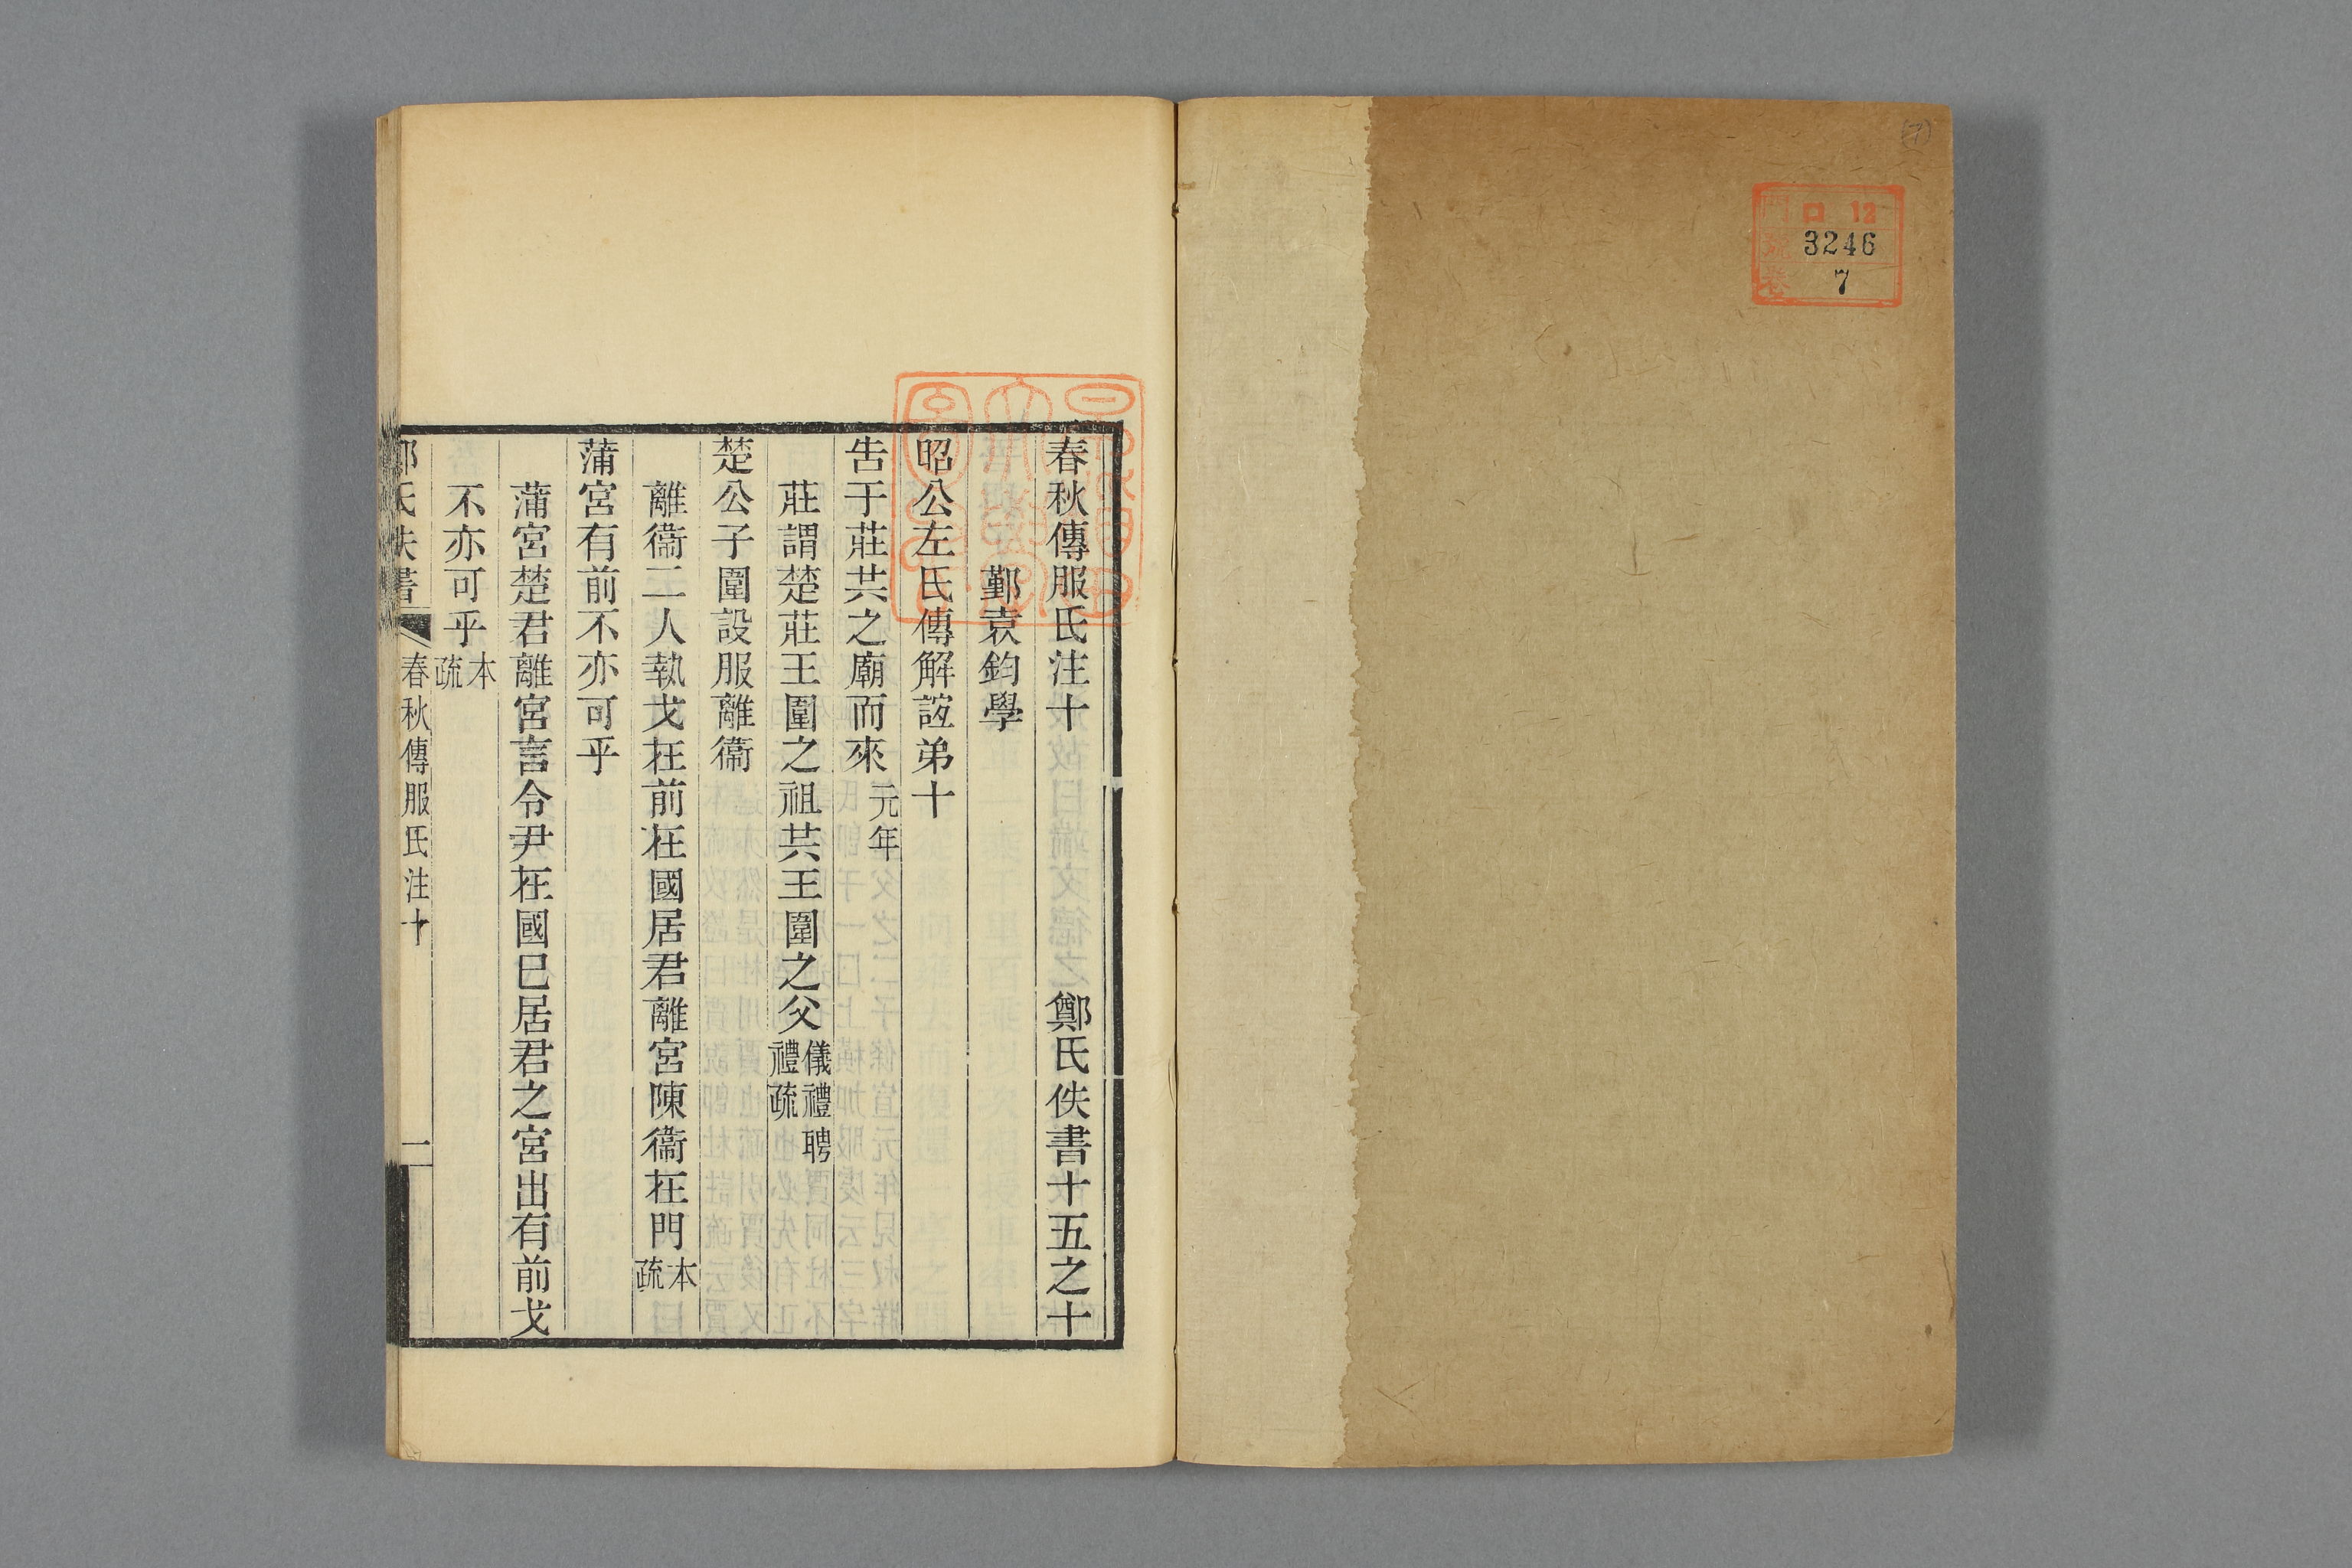 門 ロ 12
號 3246
卷 7
春秋傳服氏注十 鄭氏佚書十五之十
鄞袁鈞學
昭公左氏傳解誼弟十
告于莊共之廟而來 元年
莊謂楚莊王圍之祖共王圍之父 儀禮聘禮疏
楚公子圍設服離衞
離衞二人執戈在前在國居君離宮陳衞在門 本疏
蒲宮有前不亦可乎
蒲宮楚君離宮言令尹在國已居君之宮出有前戈
不亦可乎 本疏
鄭氏佚書 春秋傳服氏注十 一